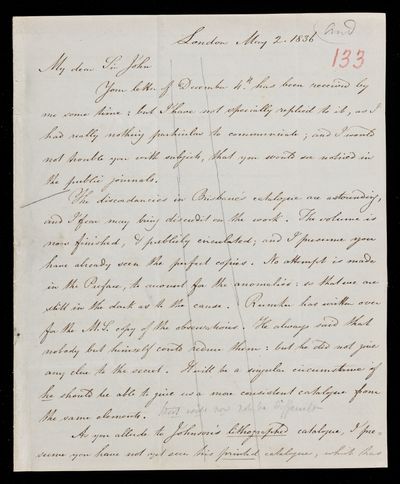 London May 2. 1836
and
133
My dear Sir John
Your letter of December 4th has been received by
me some time; but I have not specially replied to it, as I
had really nothing particular to communicate; and I would
not trouble you with subjects, that you would see noticed in
the public journals.
The discordancies in Brisbane's catalogue are astounding,
and I fear may bring discredit on the work. The volume is
now finished, & publicly circulated; and I presume you
have already seen the perfect copies. No attempt is made
in the Preface, to account for the anomalies: so that we are
still in the dark as to the cause. Rumker has written over
for the MS. copy of the observations. He always said that
nobody but himself could reduce them: but he did not give
any clue to the secret. It will be a singular circumstance if
he should be able to give us a more consistent catalogue from
the same elements.
As you allude to Johnson's lithographed catalogue, I pre-
sume you have not yet seen his printed catalogue, which has